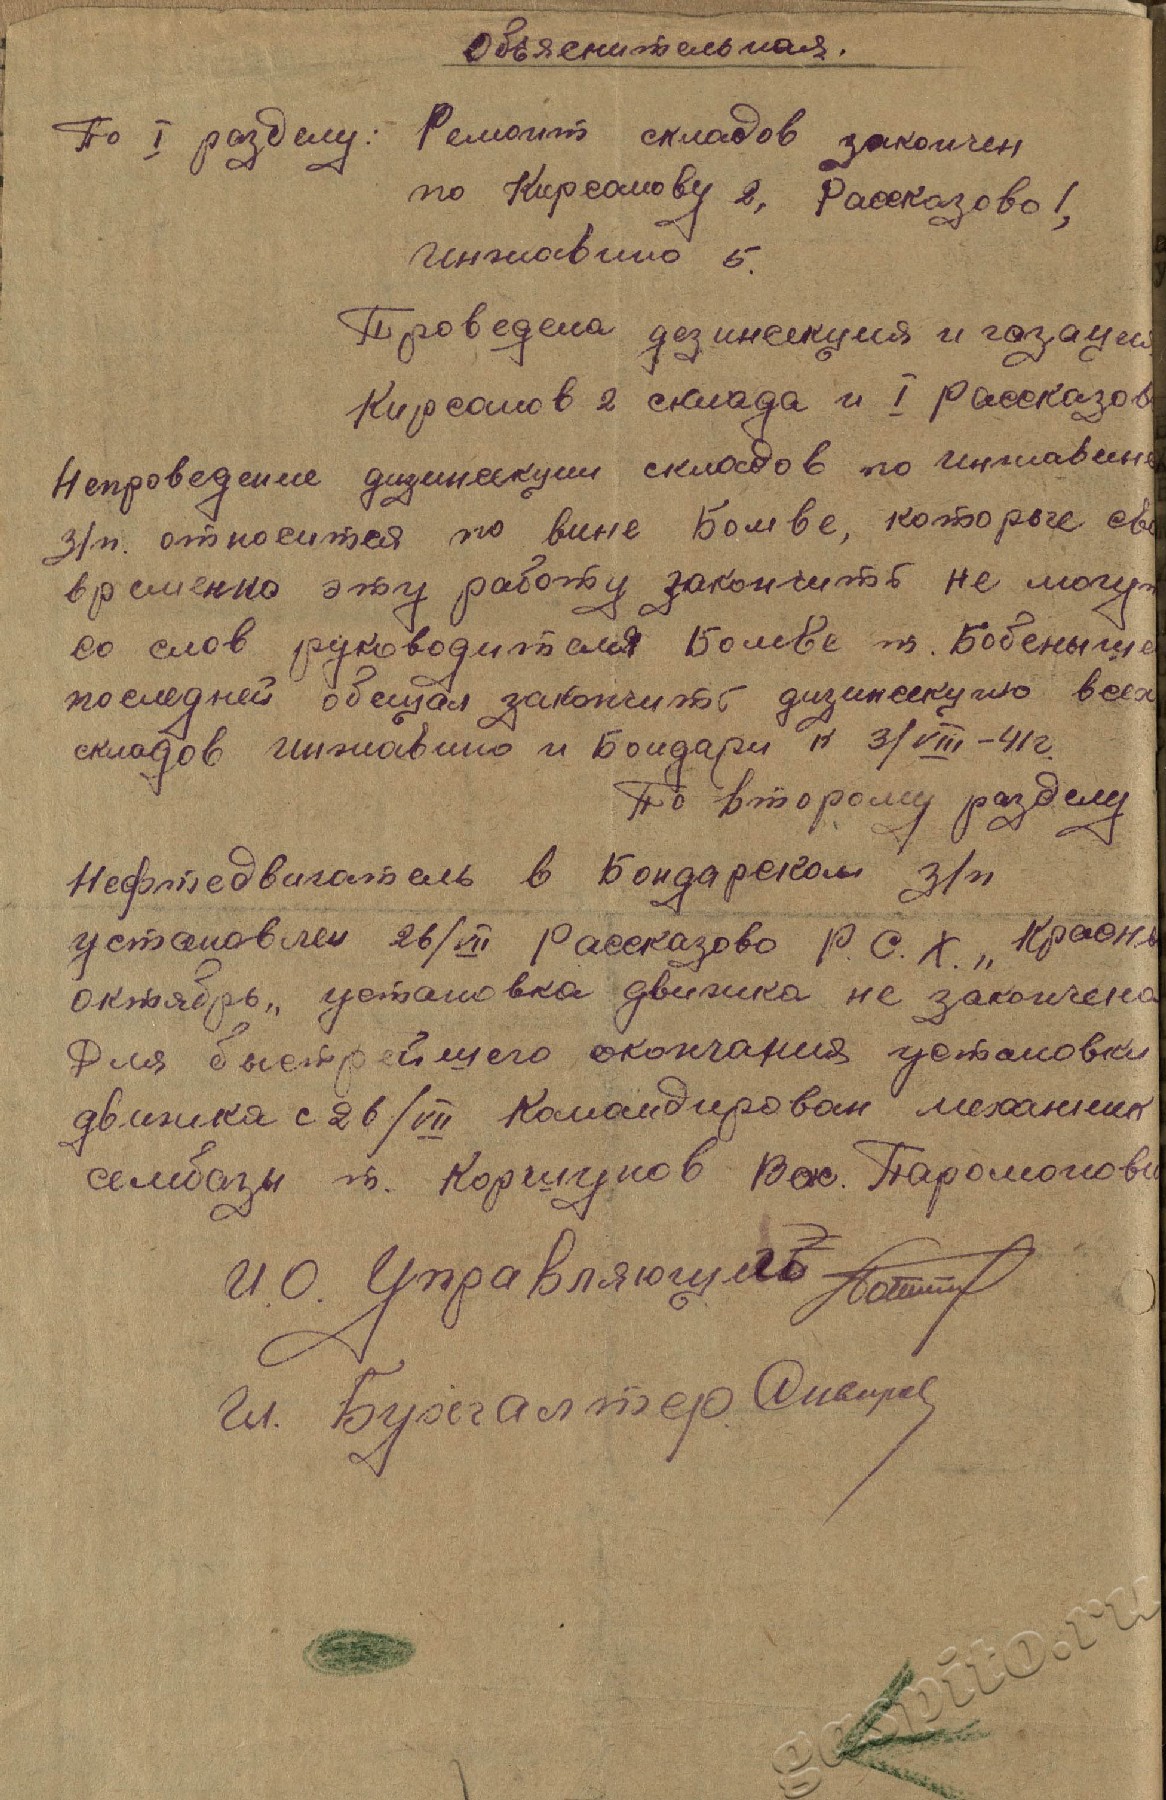 Объяснительная.
По I разделу: Ремонт складов закончен
по Кирсанову 2, Рассказово 1,
Инжавино 5.
Проведена дезинсекция и газация
Кирсанов 2 склада и I Рассказов
Непроведение дизинсекции складов по Инжавинс
З/п. относится по вине Бомве, которые сво
временно эту работу закончить не могут
со слов руководителя Бомве т.
последней обещал закончить дизинсекцию всех
складов Инжавино и Бондари к 3/VIII-41г.
По второму разделу
Нефтедвигатель в Бондарском З/п
установлен 26/VII Рассказово Р.С.Х. „Красны
октябрь„ установка движка не закончена
Для быстрейшего окончания установки
движка с 26/VII командирован механник
сембазы т. Коршунов Вас. Парамонови
И.О. Управляющий
Гл. Бухгалтер.
gaspito.ru